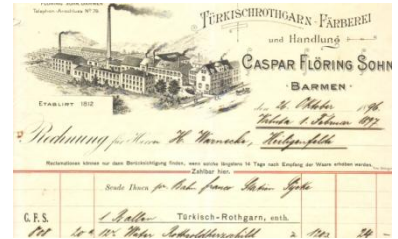 FLÖRING SOHN BARMEN
Telephon-Anschluss Nº 76.
TÜRKISCHROTHGARN-FÄRBEREI
und Handlung
CASPAR FLÖRING SOHN
BARMEN
ETABLIRT 1812.
den 26 Oktober 1896
Valuta 1. Februar 1897
Rechnung für Herren H. Warnecke, Heiligenfelde
Reclamationen können nur dann Berücksichtigung finden, wenn solche längstens 14 Tage nach Empfang der Waare erhoben werden.
Zahlbar hier.
Sende Ihnen pr. Bahn franco Station Syke
C. F. S.
1 Ballen Türkisch-Rothgarn, enth.